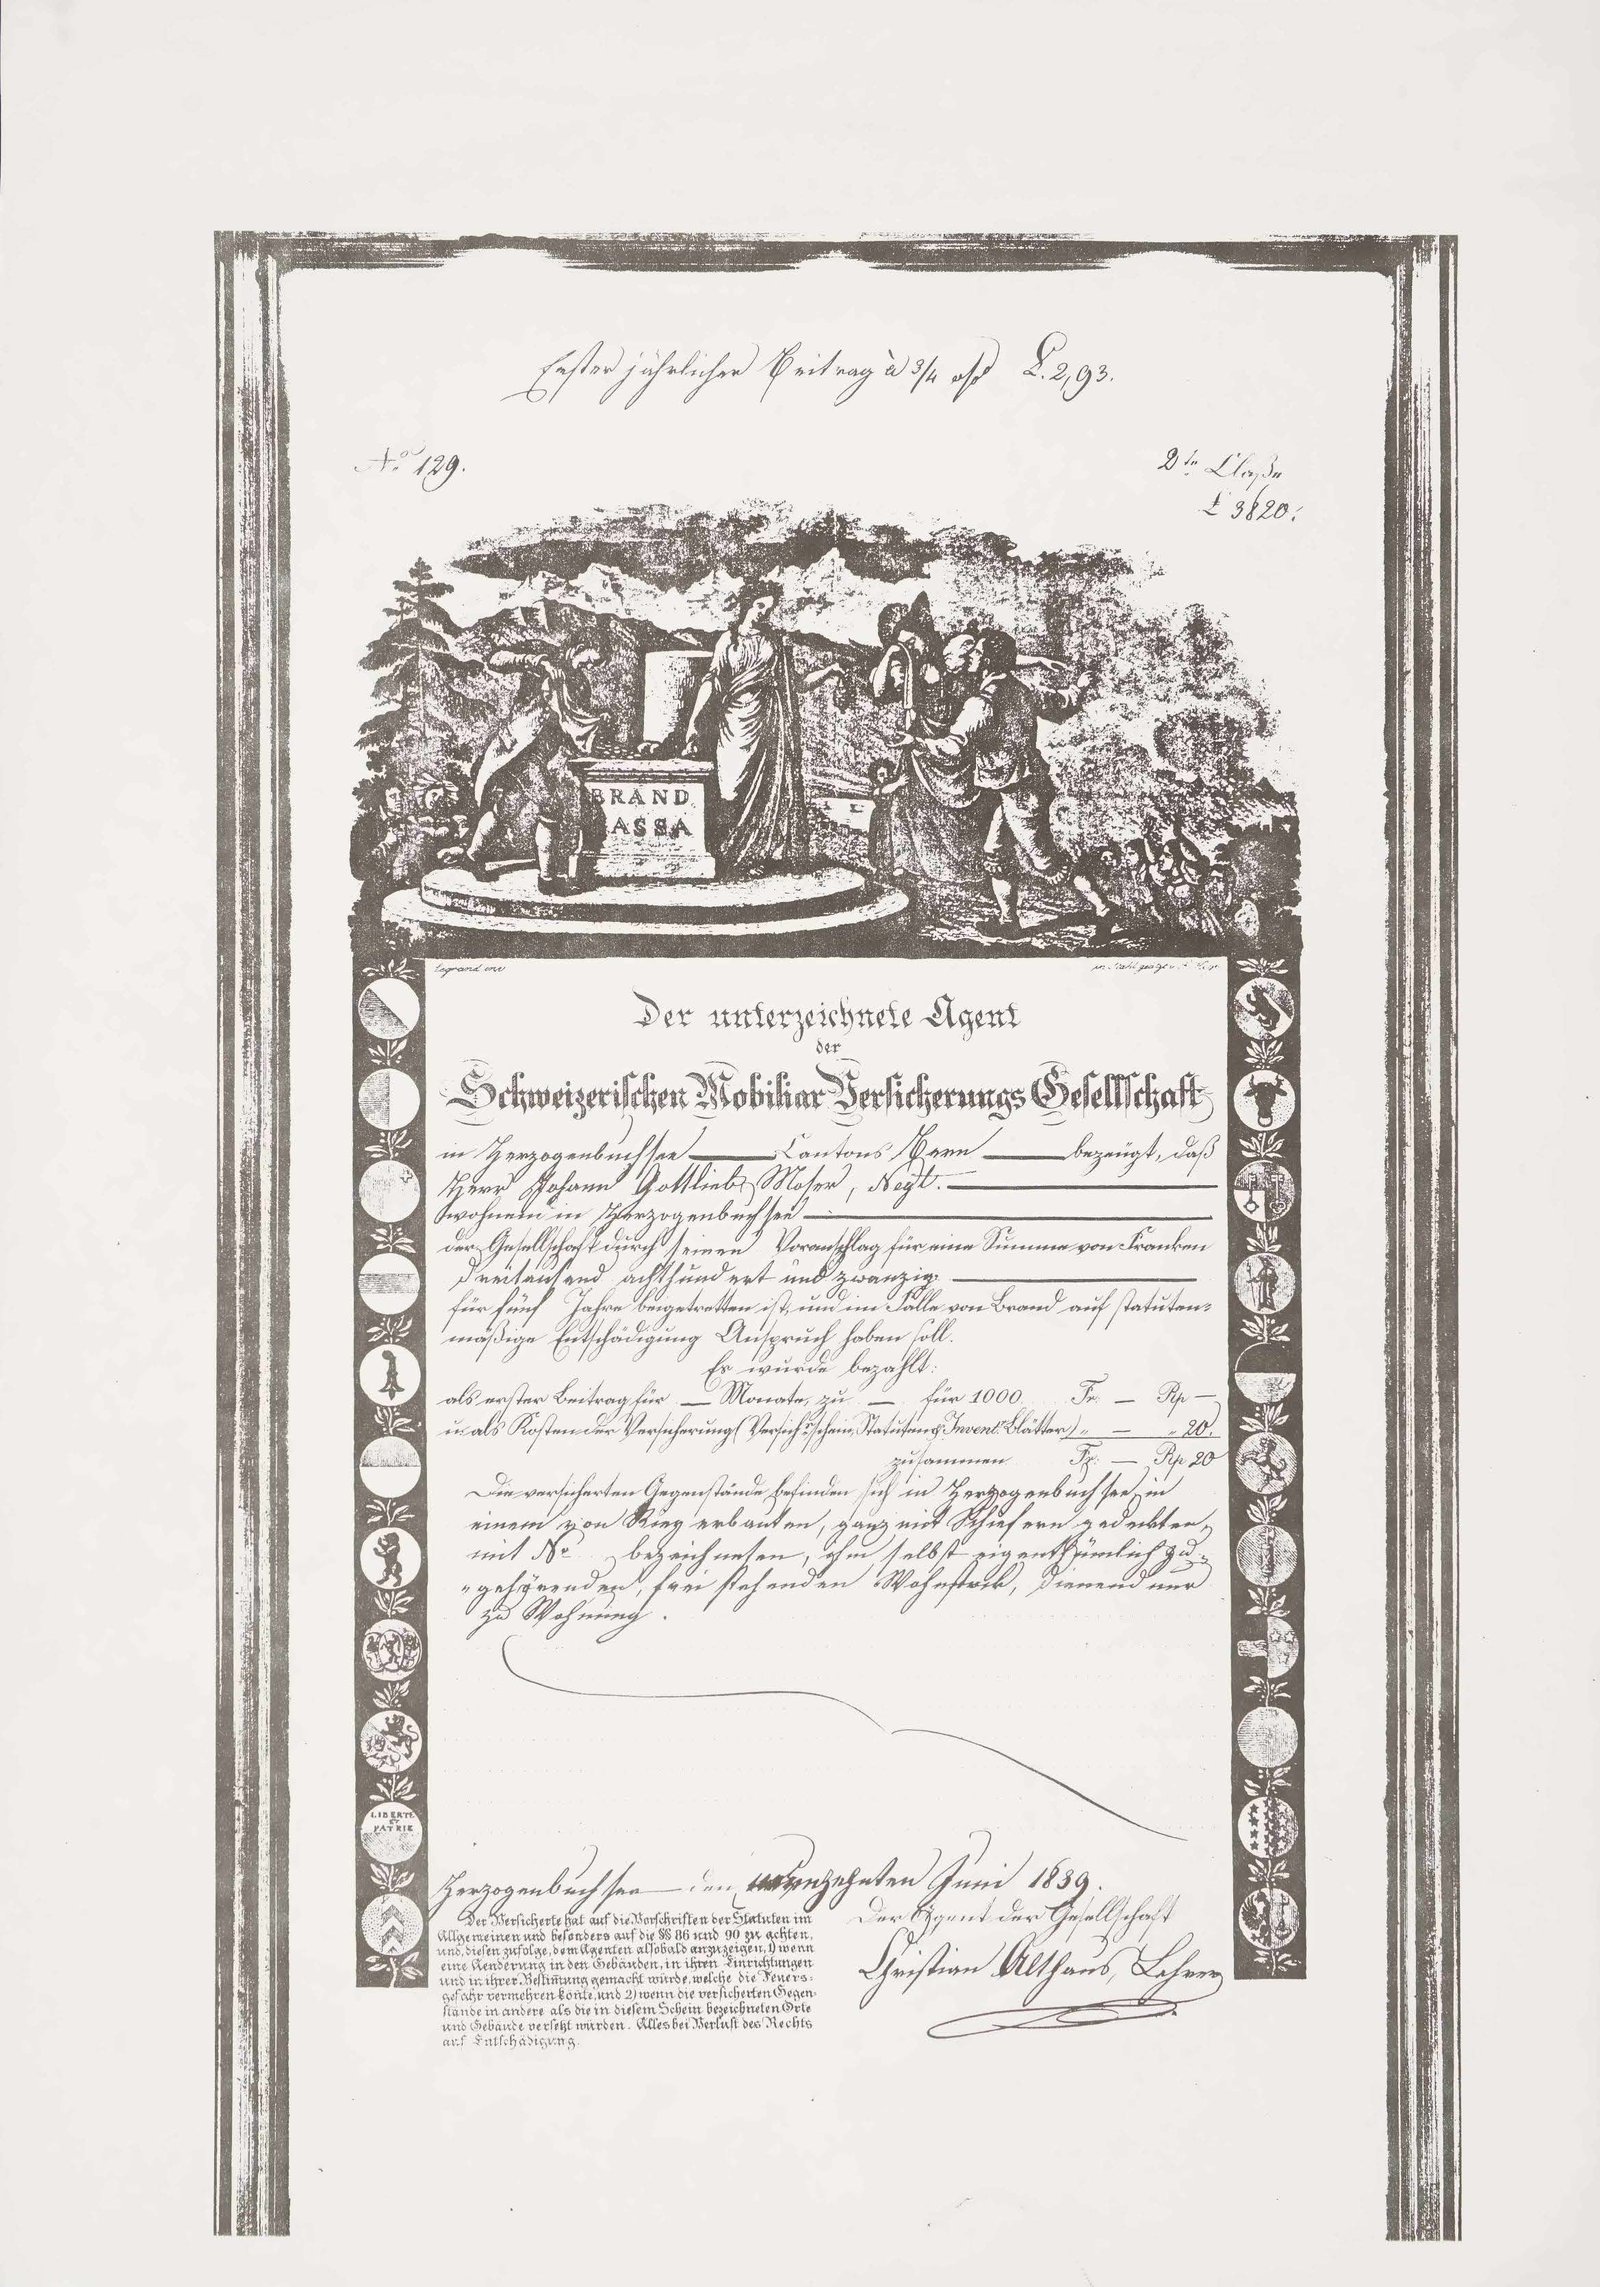 Erster jährlicher Beitrag à 3/4 L. 2,93.
No. 129.
2te Claße
L 3820.
BRAND
ASSA
Legrand inv
in Stahl geäzt v.
Der unterzeichnete Agent
der
Schweizerischen Mobiliar Versicherungs Gesellschaft
in Herzogenbuchsee Cantons Bern bezeügt, daß
Herr Johann Gottlieb Moser, Negt.
wohnend in Herzogenbuchsee
der Gesellschaft durch seinen Voranschlag für eine Summe von Franken
dreitausend achthundert und zwanzig.
für fünf Jahre beigetretten ist, und im Falle von Brand auf statuten=
mäßige Entschädigung Anspruch haben soll.
Es wurde bezahlt:
als erster Beitrag für — Monate, zu — für 1000. Fr. — Rp —
u. als Kosten der Versicherung (Versichs.schein, Statuten & Invent. Blätter) „ — „ 20.
zusammen Fr. — Rp 20
Die versicherten Gegenstände befinden sich in Herzogenbuchsee, in
einem von Rieg erbauten, ganz mit Schiefern gedekten,
mit No. bezeichneten, ihm selbst eigenthümlich zu=
„gehörenden, frei stehenden Wohnstock, dienend nur
zu Wohnung.
LIBERTE
ET
PATRIE
Herzogenbuchsee den neunzehnten Juni 1839.
Der Versicherte hat auf die Vorschriften der Statuten im
Allgemeinen und besonders auf die §§ 86 und 90 zu achten,
und, diesen zufolge, dem Agenten alsobald anzuzeigen, 1) wenn
eine Aenderung in den Gebäuden, in ihren Einrichtungen
und in ihrer Bestimmung gemacht würde, welche die Feuers=
gefahr vermehren könte, und 2) wenn die versicherten Gegen=
stände in andere als die in diesem Schein bezeichneten Orte
und Gebäude versetzt würden. Alles bei Verlust des Rechts
auf Entschädigung.
Der Agent der Gesellschaft
Christian Althaus, Lehrer